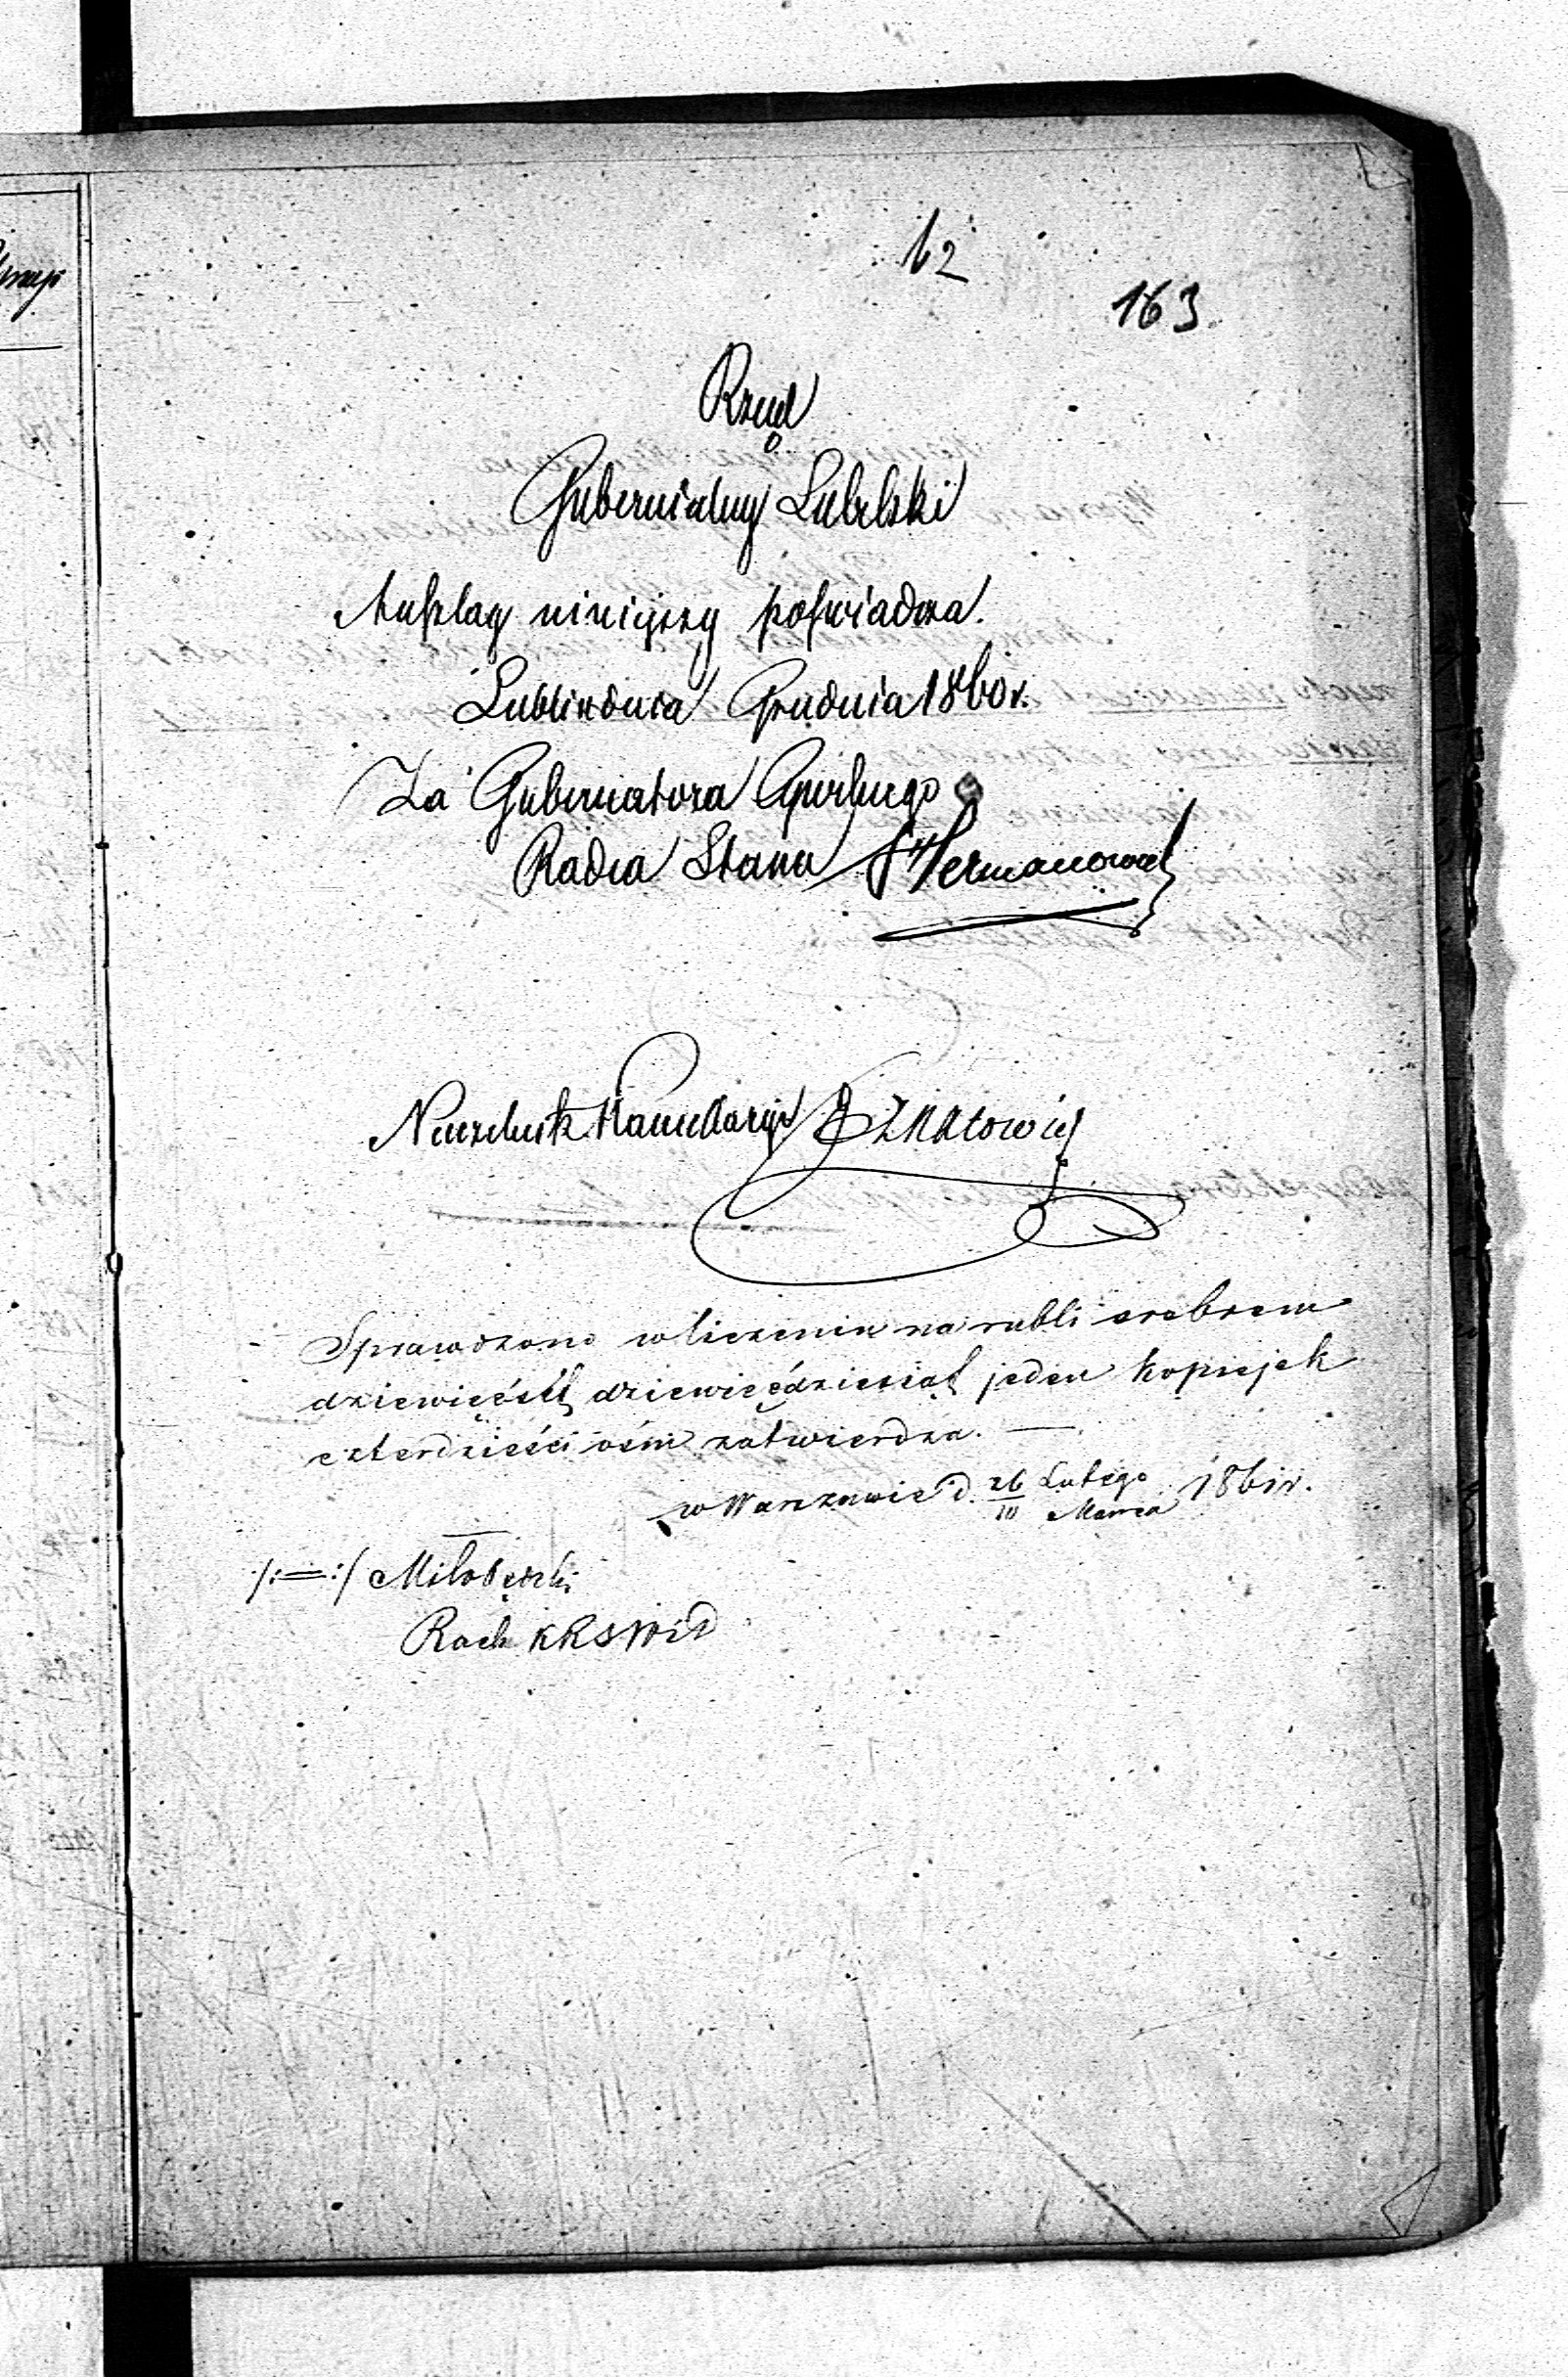 12
163.
Rząd
Gubernialny Lubelski
Anszlag niniejszy poświadcza.
Lublin dnia Grudnia 1860 r.
Za Gubernatora Cywilnego
Radca Stanu Hermanowski
Naczelnik Kancellaryi
Sprawdzono w liczeniu na rubli srebrem
dziewięćset dziewięćdziesiąt jeden kopiejek
czterdzieści ośm zatwierdza. —
w Warszawie d. 26/10 Lutego/Marca 1861 r.
/:=:/ Miłobędzki
Rach KRSWiD